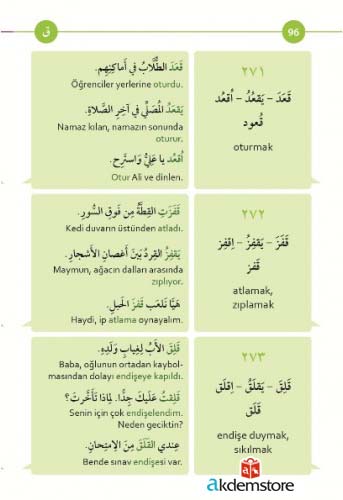 ق
96
٢٧١
قَعَدَ – يَقعُدُ – اُقعُد
قُعود
oturmak
قَعَدَ الطُّلَّابُ في أَماكِنِهِم.
Öğrenciler yerlerine oturdu.
يَقعُدُ المُصَلِّي في آخِرِ الصَّلاةِ.
Namaz kılan, namazın sonunda
oturur.
اُقعُد يا عَلِيُّ وَاستَرِح.
Otur Ali ve dinlen.
٢٧٢
قَفَزَ – يَقفِزُ – اِقفِز
قَفز
atlamak,
zıplamak
قَفَزَتِ القِطَّةُ مِن فَوقِ السُّورِ.
Kedi duvarın üstünden atladı.
يَقفِزُ القِردُ بَينَ أَغصانِ الأَشجارِ.
Maymun, ağacın dalları arasında
zıplıyor.
هَيَّا نَلعَب قَفزَ الحَبلِ.
Haydi, ip atlama oynayalım.
٢٧٣
قَلِقَ – يَقلَقُ – اِقلَق
قَلَق
endişe duymak,
sıkılmak
قَلِقَ الأَبُ لِغِيابِ وَلَدِهِ.
Baba, oğlunun ortadan kaybol-
masından dolayı endişeye kapıldı.
قَلِقتُ عَلَيكَ جِدًّا. لِماذا تَأَخَّرتَ؟
Senin için çok endişelendim.
Neden geciktin?
عِندي القَلَقُ مِنَ الاِمتِحانِ.
Bende sınav endişesi var.
akdemstore